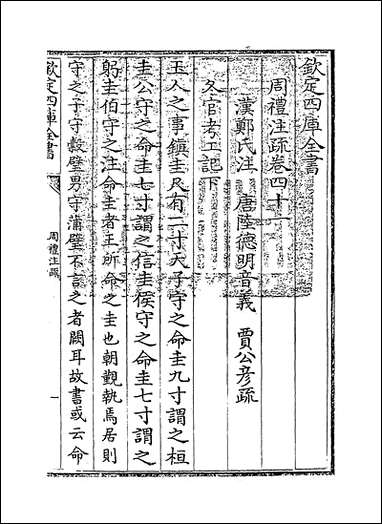 欽定四庫全書
周禮注疏卷四十一
漢鄭氏注 唐陸德明音義 賈公彥疏
冬官考工記下
玉人之事鎮圭尺有二寸天子守之命圭九寸謂之桓
圭公守之命圭七寸謂之信圭侯守之命圭七寸謂之
躬圭伯守之注命圭者王所命之圭也朝覲執焉居則
守之子守穀璧男守蒲璧不言之者闕耳故書或云命
欽定四庫全書
周禮注疏
一